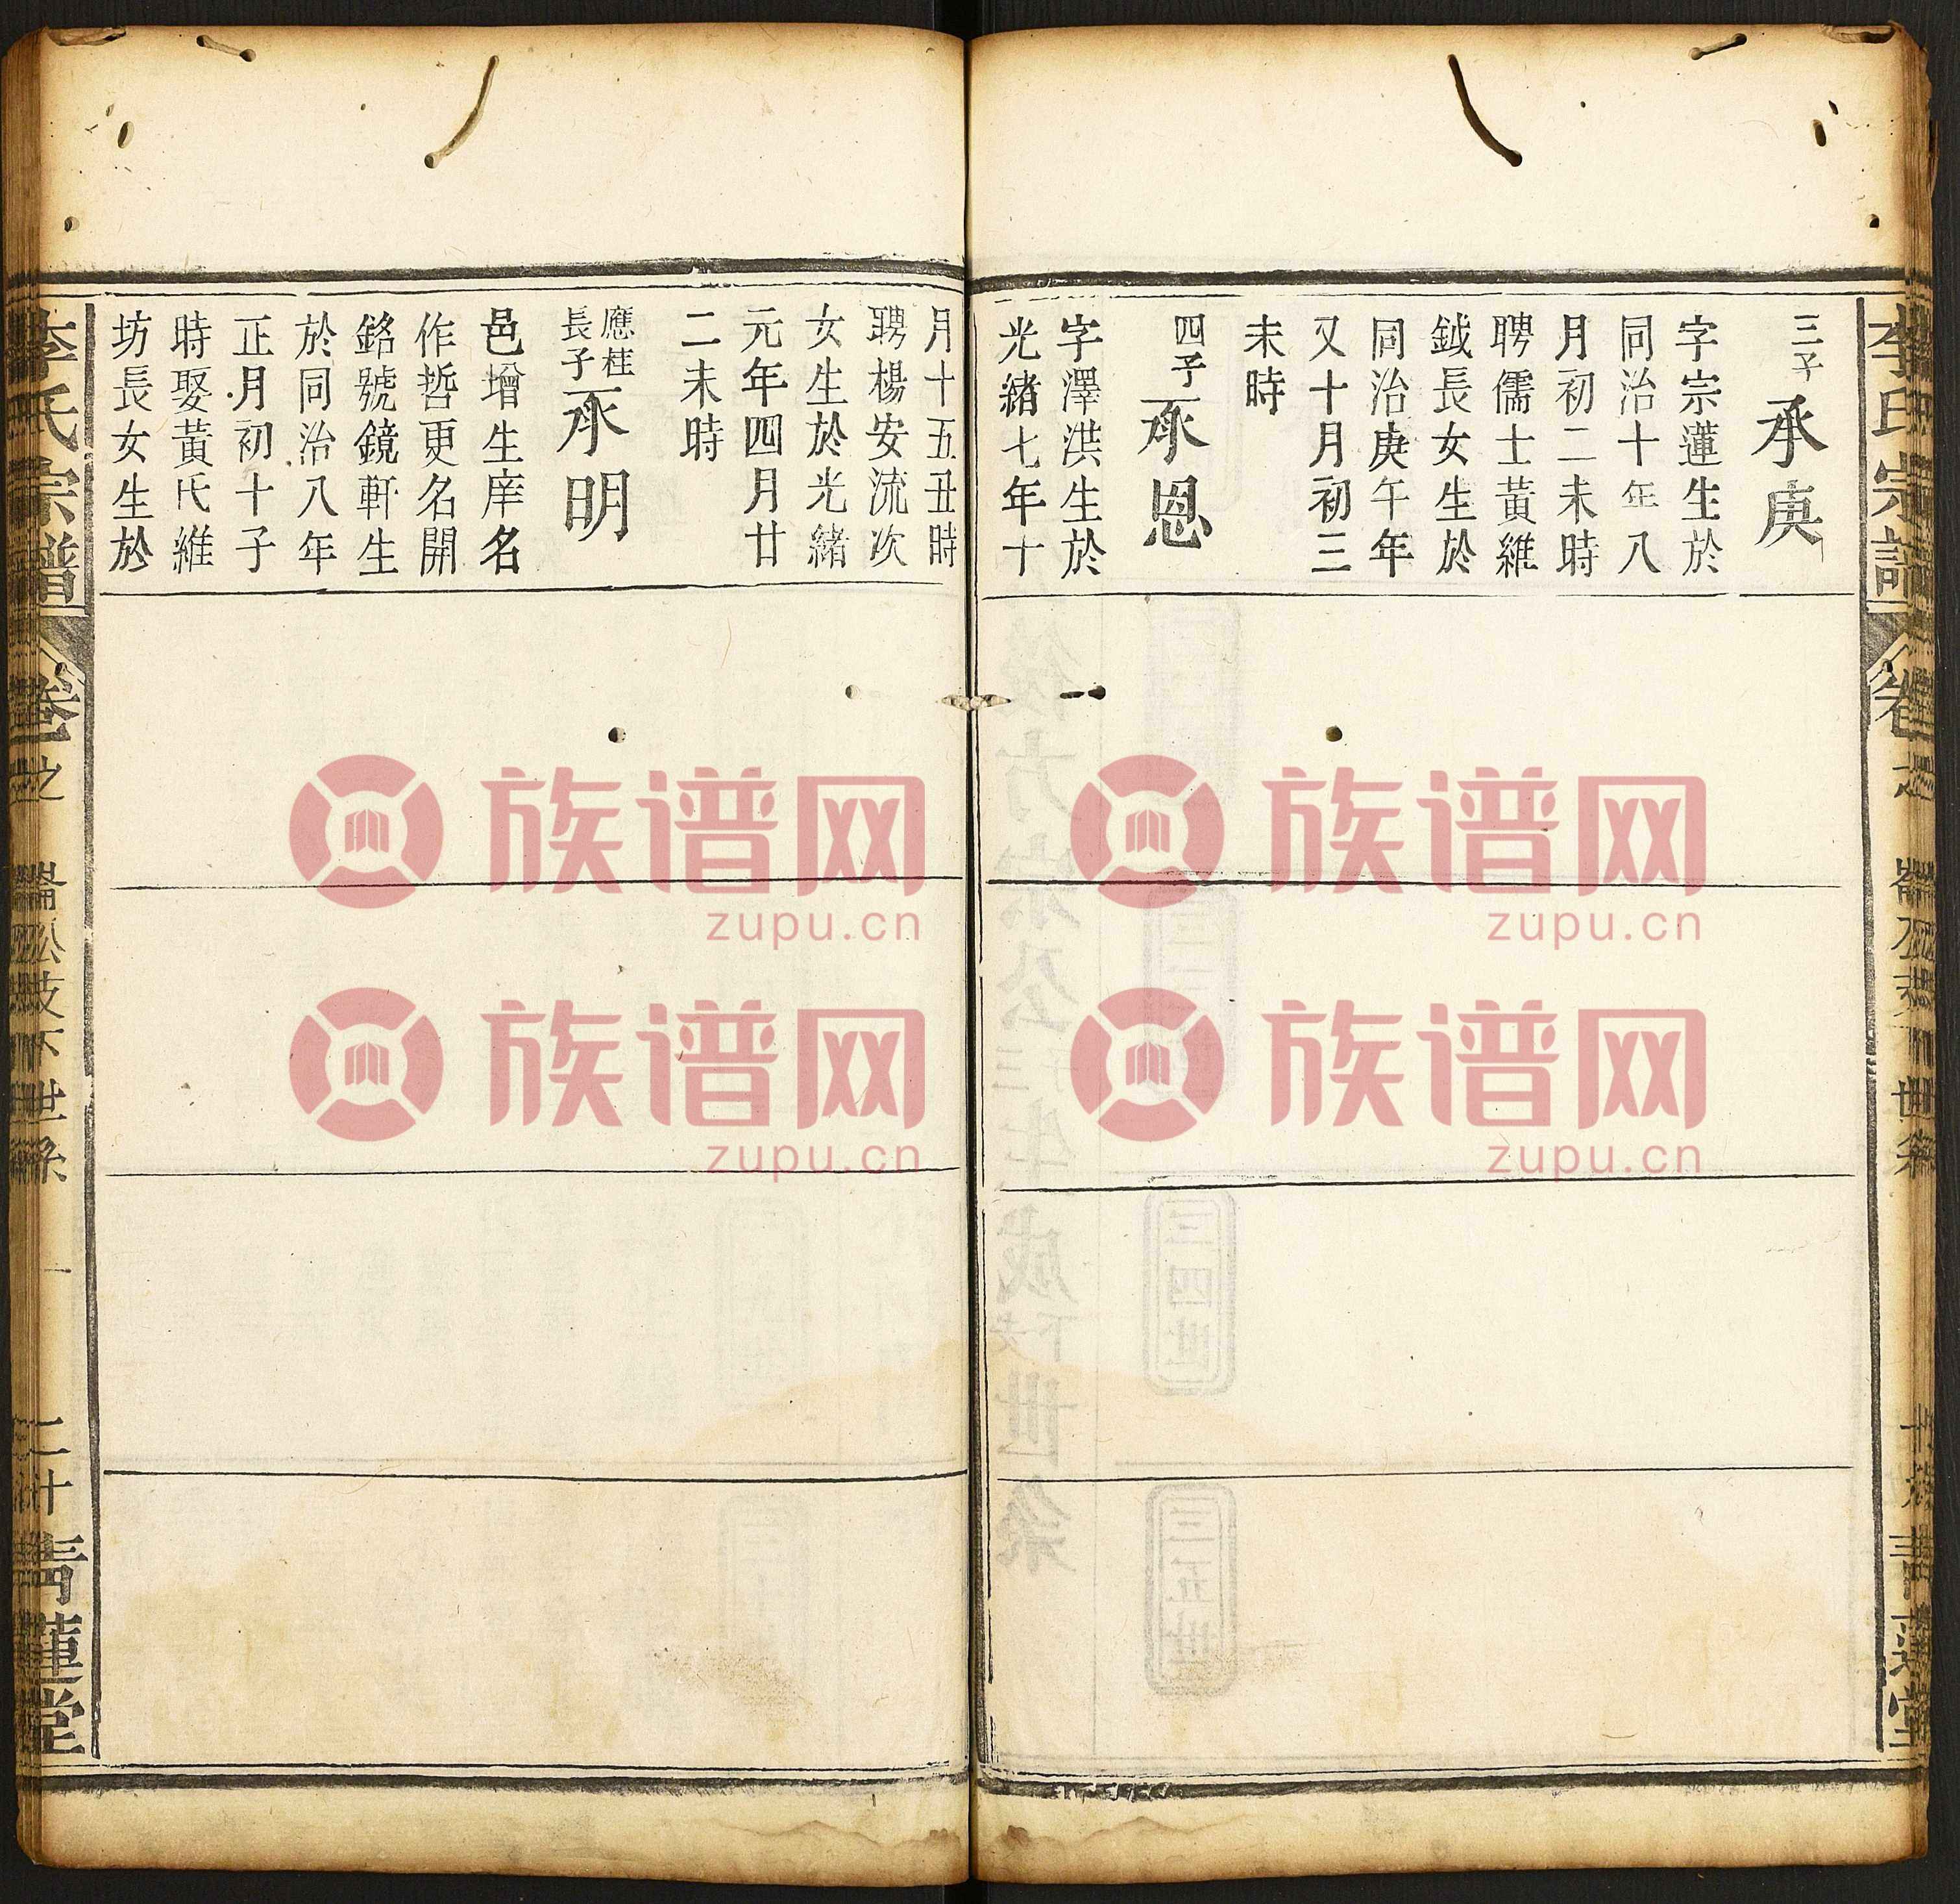 三子承庚
字宗蓮生於
同治十年八
月初二未時
聘儒士黃維
鉞長女生於
同治庚午年
又十月初三
未時
四子承恩
字澤洪生於
光緒七年十
月十五丑時
聘楊安流次
女生於光緒
元年四月廿
二未時
應桂長子承明
邑增生庠名
作哲更名開
銘號鏡軒生
於同治八年
正月初十子
時娶黃氏維
坊長女生於
李氏宗譜
卷之
世系
二十
青蓮堂
族谱网
zupu.cn
族谱网
zupu.cn
族谱网
zupu.cn
族谱网
zupu.cn